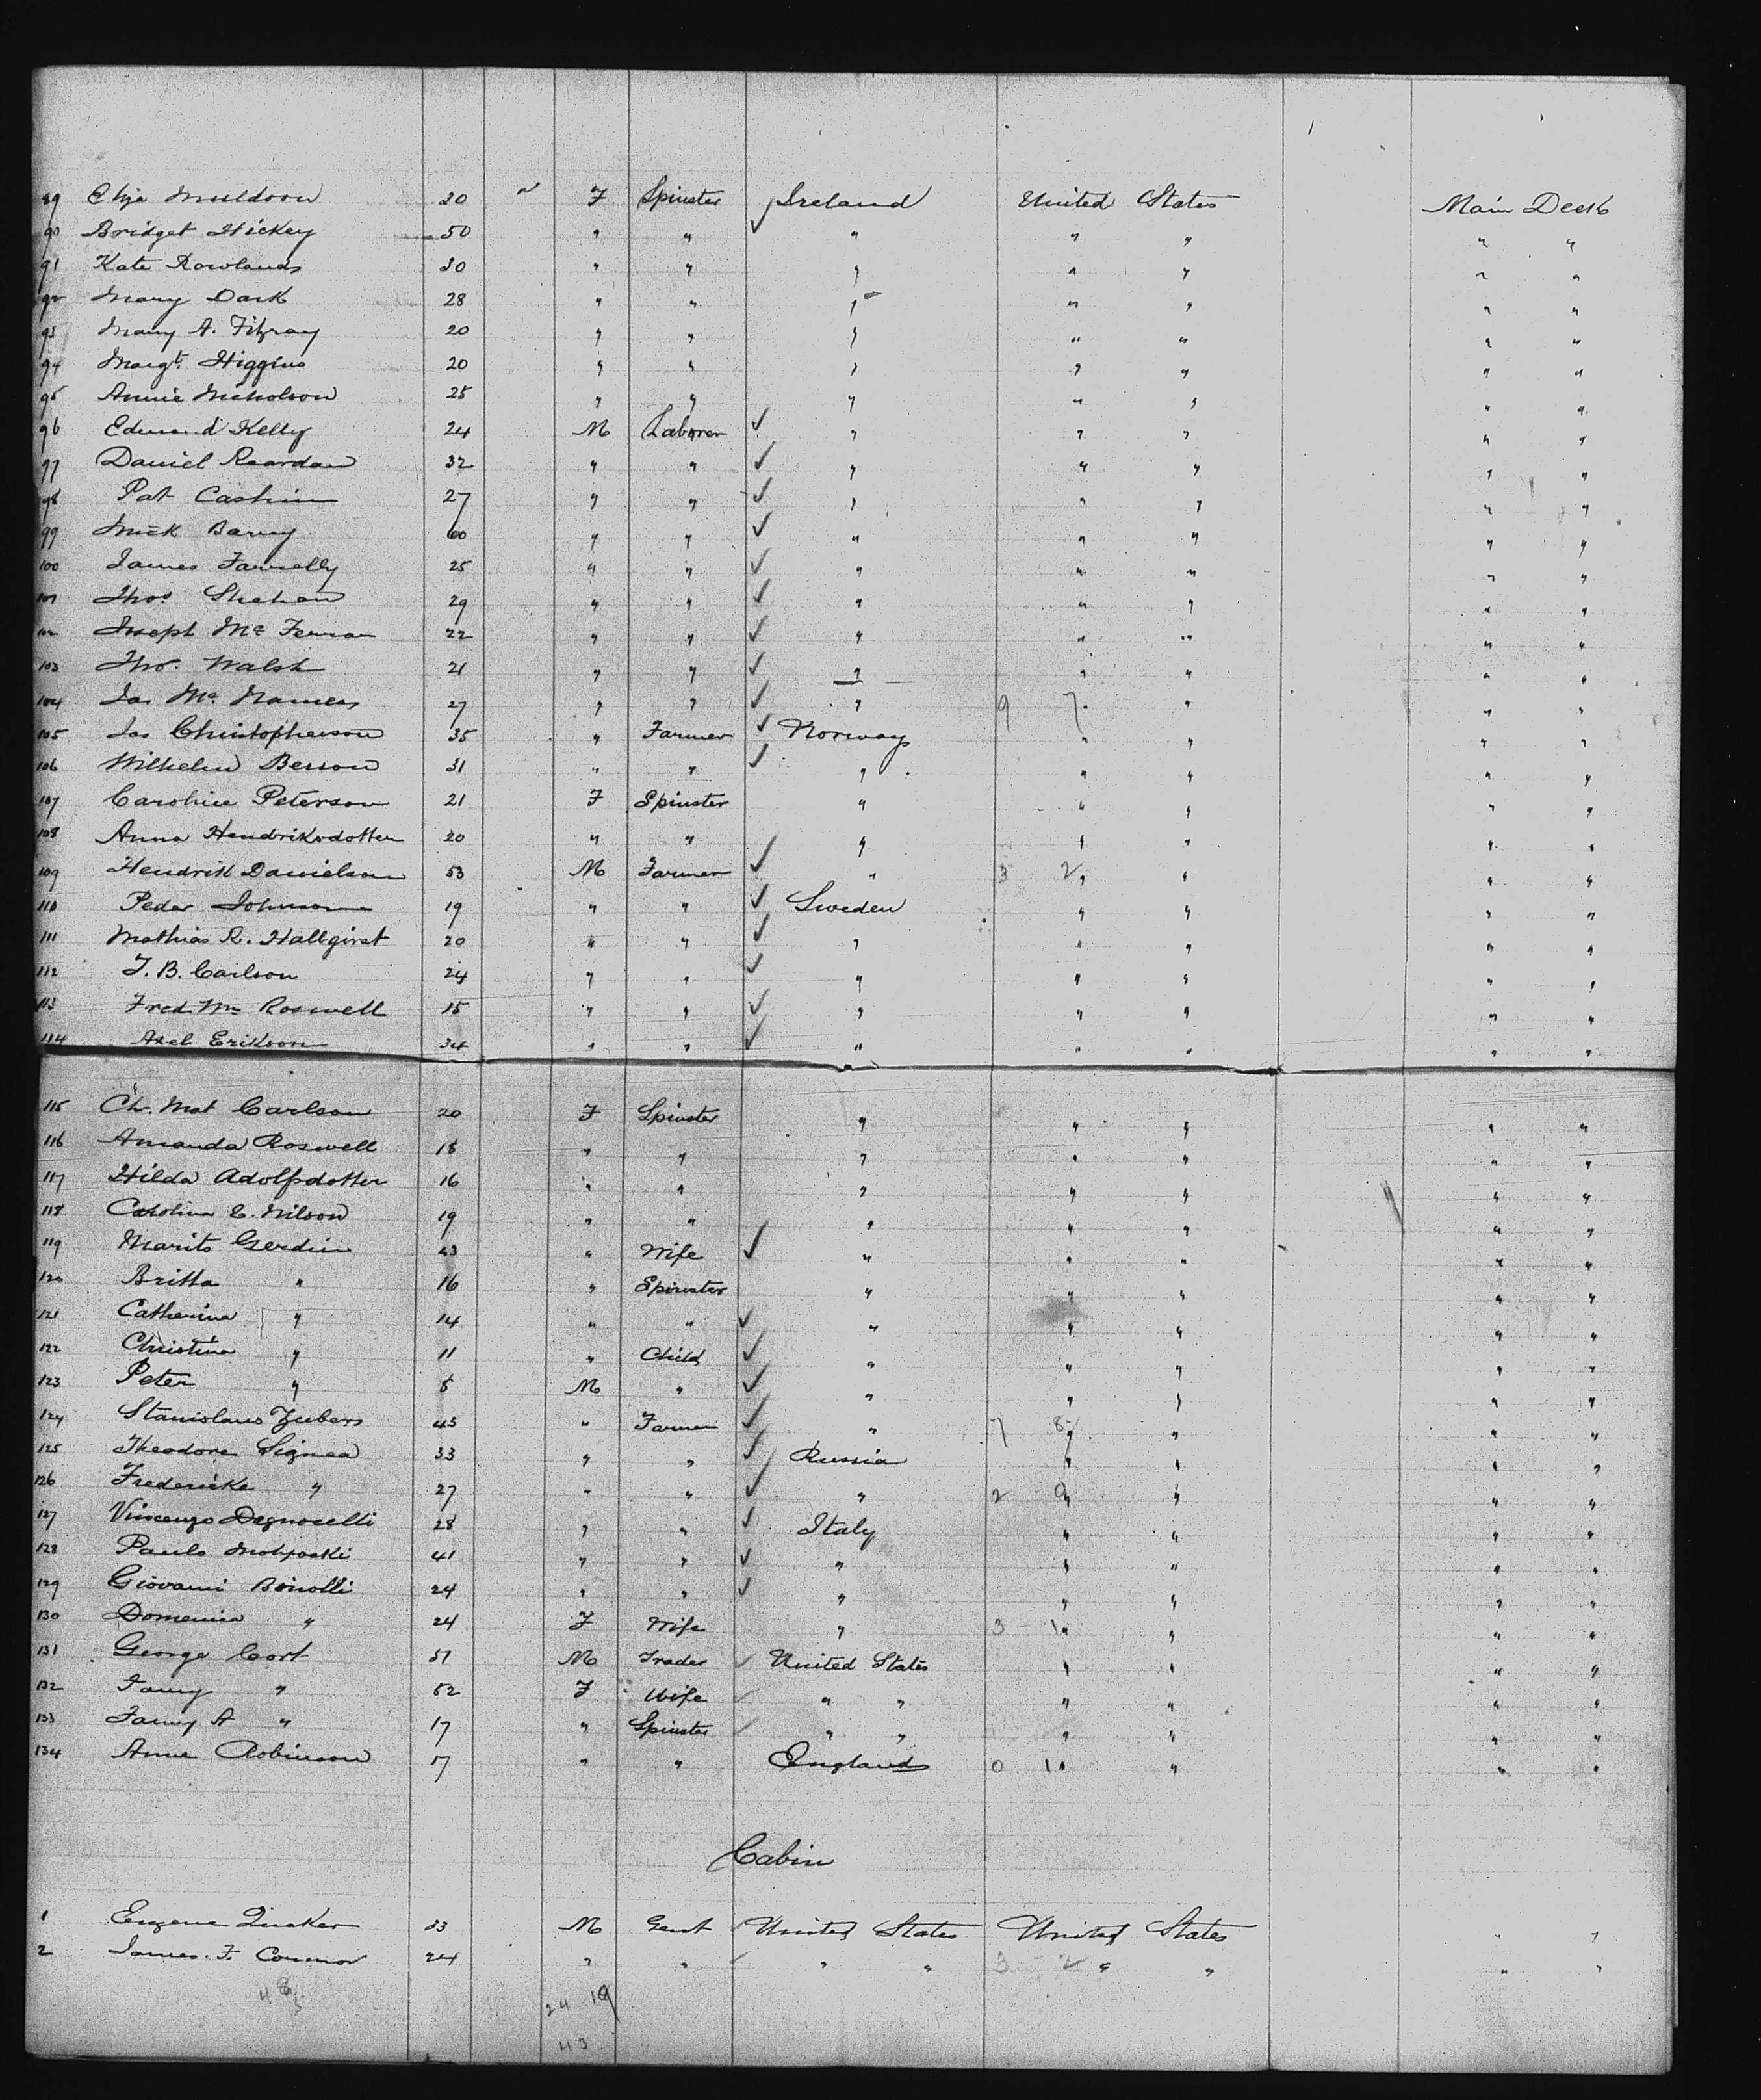 89 Eliza Muldoon 20 " F Spinster Ireland United States Main Deck
90 Bridget Hickey 50 " " " " " " "
91 Kate Rowlands 30 " " " " " " "
92 Mary Dark 28 " " " " " " "
93 Mary A. Fitzray 20 " " " " " " "
94 Margt. Higgins 20 " " " " " " "
95 Annie Nicholson 25 " " " " " " "
96 Edward Kelly 24 M Laborer ✓ " " " " "
97 Daniel Reardan 32 " " ✓ " " " " "
98 Pat Cashin 27 " " ✓ " " " " "
99 Mick Barry 60 " " ✓ " " " " "
100 James Farrelly 25 " " ✓ " " " " "
101 Thos Shehan 29 " " ✓ " " " " "
102 Joseph Mc 22 " " ✓ " " " " "
103 Tho. Walsh 21 " " ✓ " " " " "
104 Jas Mc 27 " " ✓ " 9 7 " " " "
105 Jas Christopherson 35 " Farmer ✓ Norway " " " "
106 Wilhelm Berson 31 " " ✓ " " " " "
107 Caroline Peterson 21 F Spinster " " " " "
108 Anna Hendriksdotter 20 " " " " " " "
109 Hendrik Danielson 53 M Farmer ✓ " 3 2 " " " "
110 Peder Johnson 19 " " ✓ Sweden " " " "
111 Mathias R. Hallgirst 20 " " ✓ " " " " "
112 J. B. Carlson 24 " " ✓ " " " " "
113 Fred Wm Roswell 15 " " ✓ " " " " "
114 Axel Erikson 34 " " ✓ " " " " "
115 Ch. Mat Carlson 20 F Spinster " " " " "
116 Amanda Roswell 18 " " " " " " "
117 Hilda Adolfsdotter 16 " " " " " " "
118 Carolina C. Nilson 19 " " " " " " "
119 Marits Gerdin 43 " Wife ✓ " " " " "
120 Britta " 16 " Spinster " " " " "
121 Catherina " 14 " " ✓ " " " " "
122 Christina " 11 " Child ✓ " " " " "
123 Peter " 8 M " ✓ " " " " "
124 Stanislaus Zubers 45 " Farmer ✓ " 7 8 " " " "
125 Theodore Signea 33 " " ✓ Russia " " " "
126 Fredericke " 27 " " ✓ " 2 9 " " " "
127 Vincenzo Dagnocelli 28 " " ✓ Italy " " " "
128 Paulo 41 " " ✓ " " " " "
129 Giovanni Binolli 24 " " ✓ " " " " "
130 Domenica " 24 F Wife " 3 1 " " " "
131 George Cort 51 M Trader ✓ United States " " " "
132 Fanny " 52 F Wife ✓ " " " " " "
133 Fanny A " 17 " Spinster ✓ " " " " " "
134 Anne Robinson 17 " " England 0 1 " " " "
Cabin
1 Eugene Quaker 33 M Gent ✓ United States United States " "
2 James. F. Connor 24 " " ✓ " " 3 2 " " " "
48
24 19
43